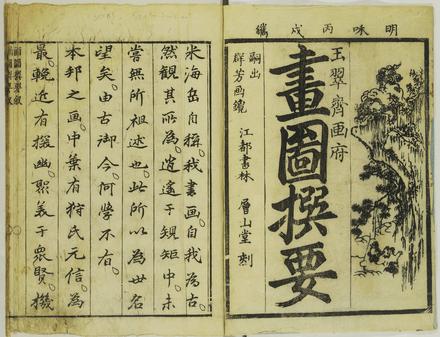 明咊丙戌
玉翠齋画府
畫圖撰要
嗣出
群芳画
江都書林 層山堂 刻
米海岳自稱。我書画。自我為古。
然觀其所為。逍遙于規矩中。未
嘗無所祖述也。此所以為世名
望矣。由古御今。何學不有。
本邦之画。中葉有狩氏元信。為
最。輓近有探幽。聚美于衆賢。機